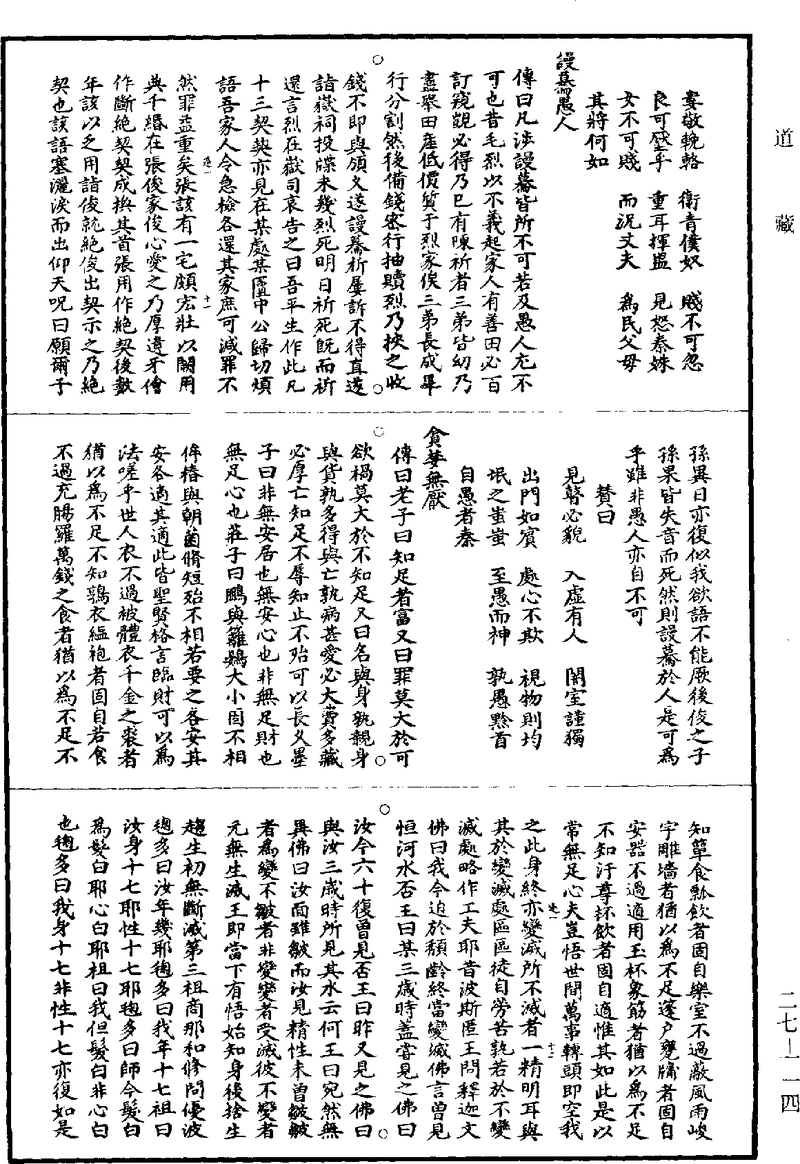 道藏
婁敬輓輅　衛青僕奴　賤不可忽
良可壓乎　重耳揮盥　見怒秦姝
女不可賤　而況丈夫　為民父母
其將何如
謾驀愚人
傳曰凡涉謾驀皆所不可若及愚人尤不
可也昔毛烈以不義起家人有善田必百
訂窺覷必得乃已有陳祈者三弟皆幼乃
盡舉田產低價質于烈家俟三弟長成畢
行分割然後備錢密行抽贖烈乃挾之收
錢不即與頎文遂謾驀祈屢訴不得直遂
詣嶽祠投牒未幾烈死明日祈死既而祈
還言烈在嶽司哀告之曰吾平生作此凡
十三契契亦見在某處某匱中公歸切煩
語吾家人令急檢各還其家庶可減罪不
然罪益重矣張該有一宅頗宏壯以闕用
典千緡在張俊家俊心愛之乃厚遺牙儈
作斷絕契契成換其首張用作絕契後數
年該以乏用詣俊就絕俊出契示之乃絕
契也該語塞灑淚而出仰天呪曰願爾子
孫異日亦復似我欲語不能厥後俊之子
孫果皆失音而死然則謾驀於人是可為
乎雖非愚人亦自不可
贊曰
見瞽必貌　入虛有人　闇室謹獨
出門如賓　處心不欺　視物則均
氓之蚩蚩　至愚而神　孰愚黔首
自愚者秦
貪婪無厭
傳曰老子曰知足者富又曰罪莫大於可
欲禍莫大於不知足又曰名與身孰親身
與貨孰多得與亡孰病甚愛必大費多藏
必厚亡知足不辱知止不殆可以長久墨
子曰非無安居也無安心也非無足財也
無足心也莊子曰鵬與籬鷃大小固不相
侔椿與朝菌脩短殆不相若要之各安其
安各適其適此皆聖賢格言臨財可以為
法嗟乎世人衣不過被體衣千金之裘者
猶以為不足不知鶉衣緼袍者固自若食
不過充腸羅萬錢之食者猶以為不足不
知簞食瓢飲者固自樂室不過蔽風雨峻
宇雕墻者猶以為不足蓬戶甕牖者固自
安器不過適用玉杯象筯者猶以為不足
不知汙尊抔飲者固自適惟其如此是以
常無足心夫豈悟世間萬事轉頭即空我
之此身終亦變滅所不滅者一精明耳與
其於變滅處區區徒自勞苦孰若於不變
滅處略作工夫耶昔波斯匿王問釋迦文
佛曰我今迫於頹齡終當變滅佛言曾見
恒河水否王曰某三歲時蓋嘗見之佛曰
汝今六十復曾見否王曰昨又見之佛曰
與汝三歲時所見其水云何王曰宛然無
異佛曰汝面雖皺而汝見精性未曾皺皺
者為變不皺者非變變者受滅彼不變者
元無生滅王即當下有悟始知身後捨生
趣生初無斷滅第三祖商那和修問優波
毱多曰汝年幾耶毱多曰我年十七祖曰
汝身十七耶性十七耶毱多曰師今髮白
為髮白耶心白耶祖曰我但髮白非心白
也毱多曰我身十七非性十七亦復如是
二七—一四